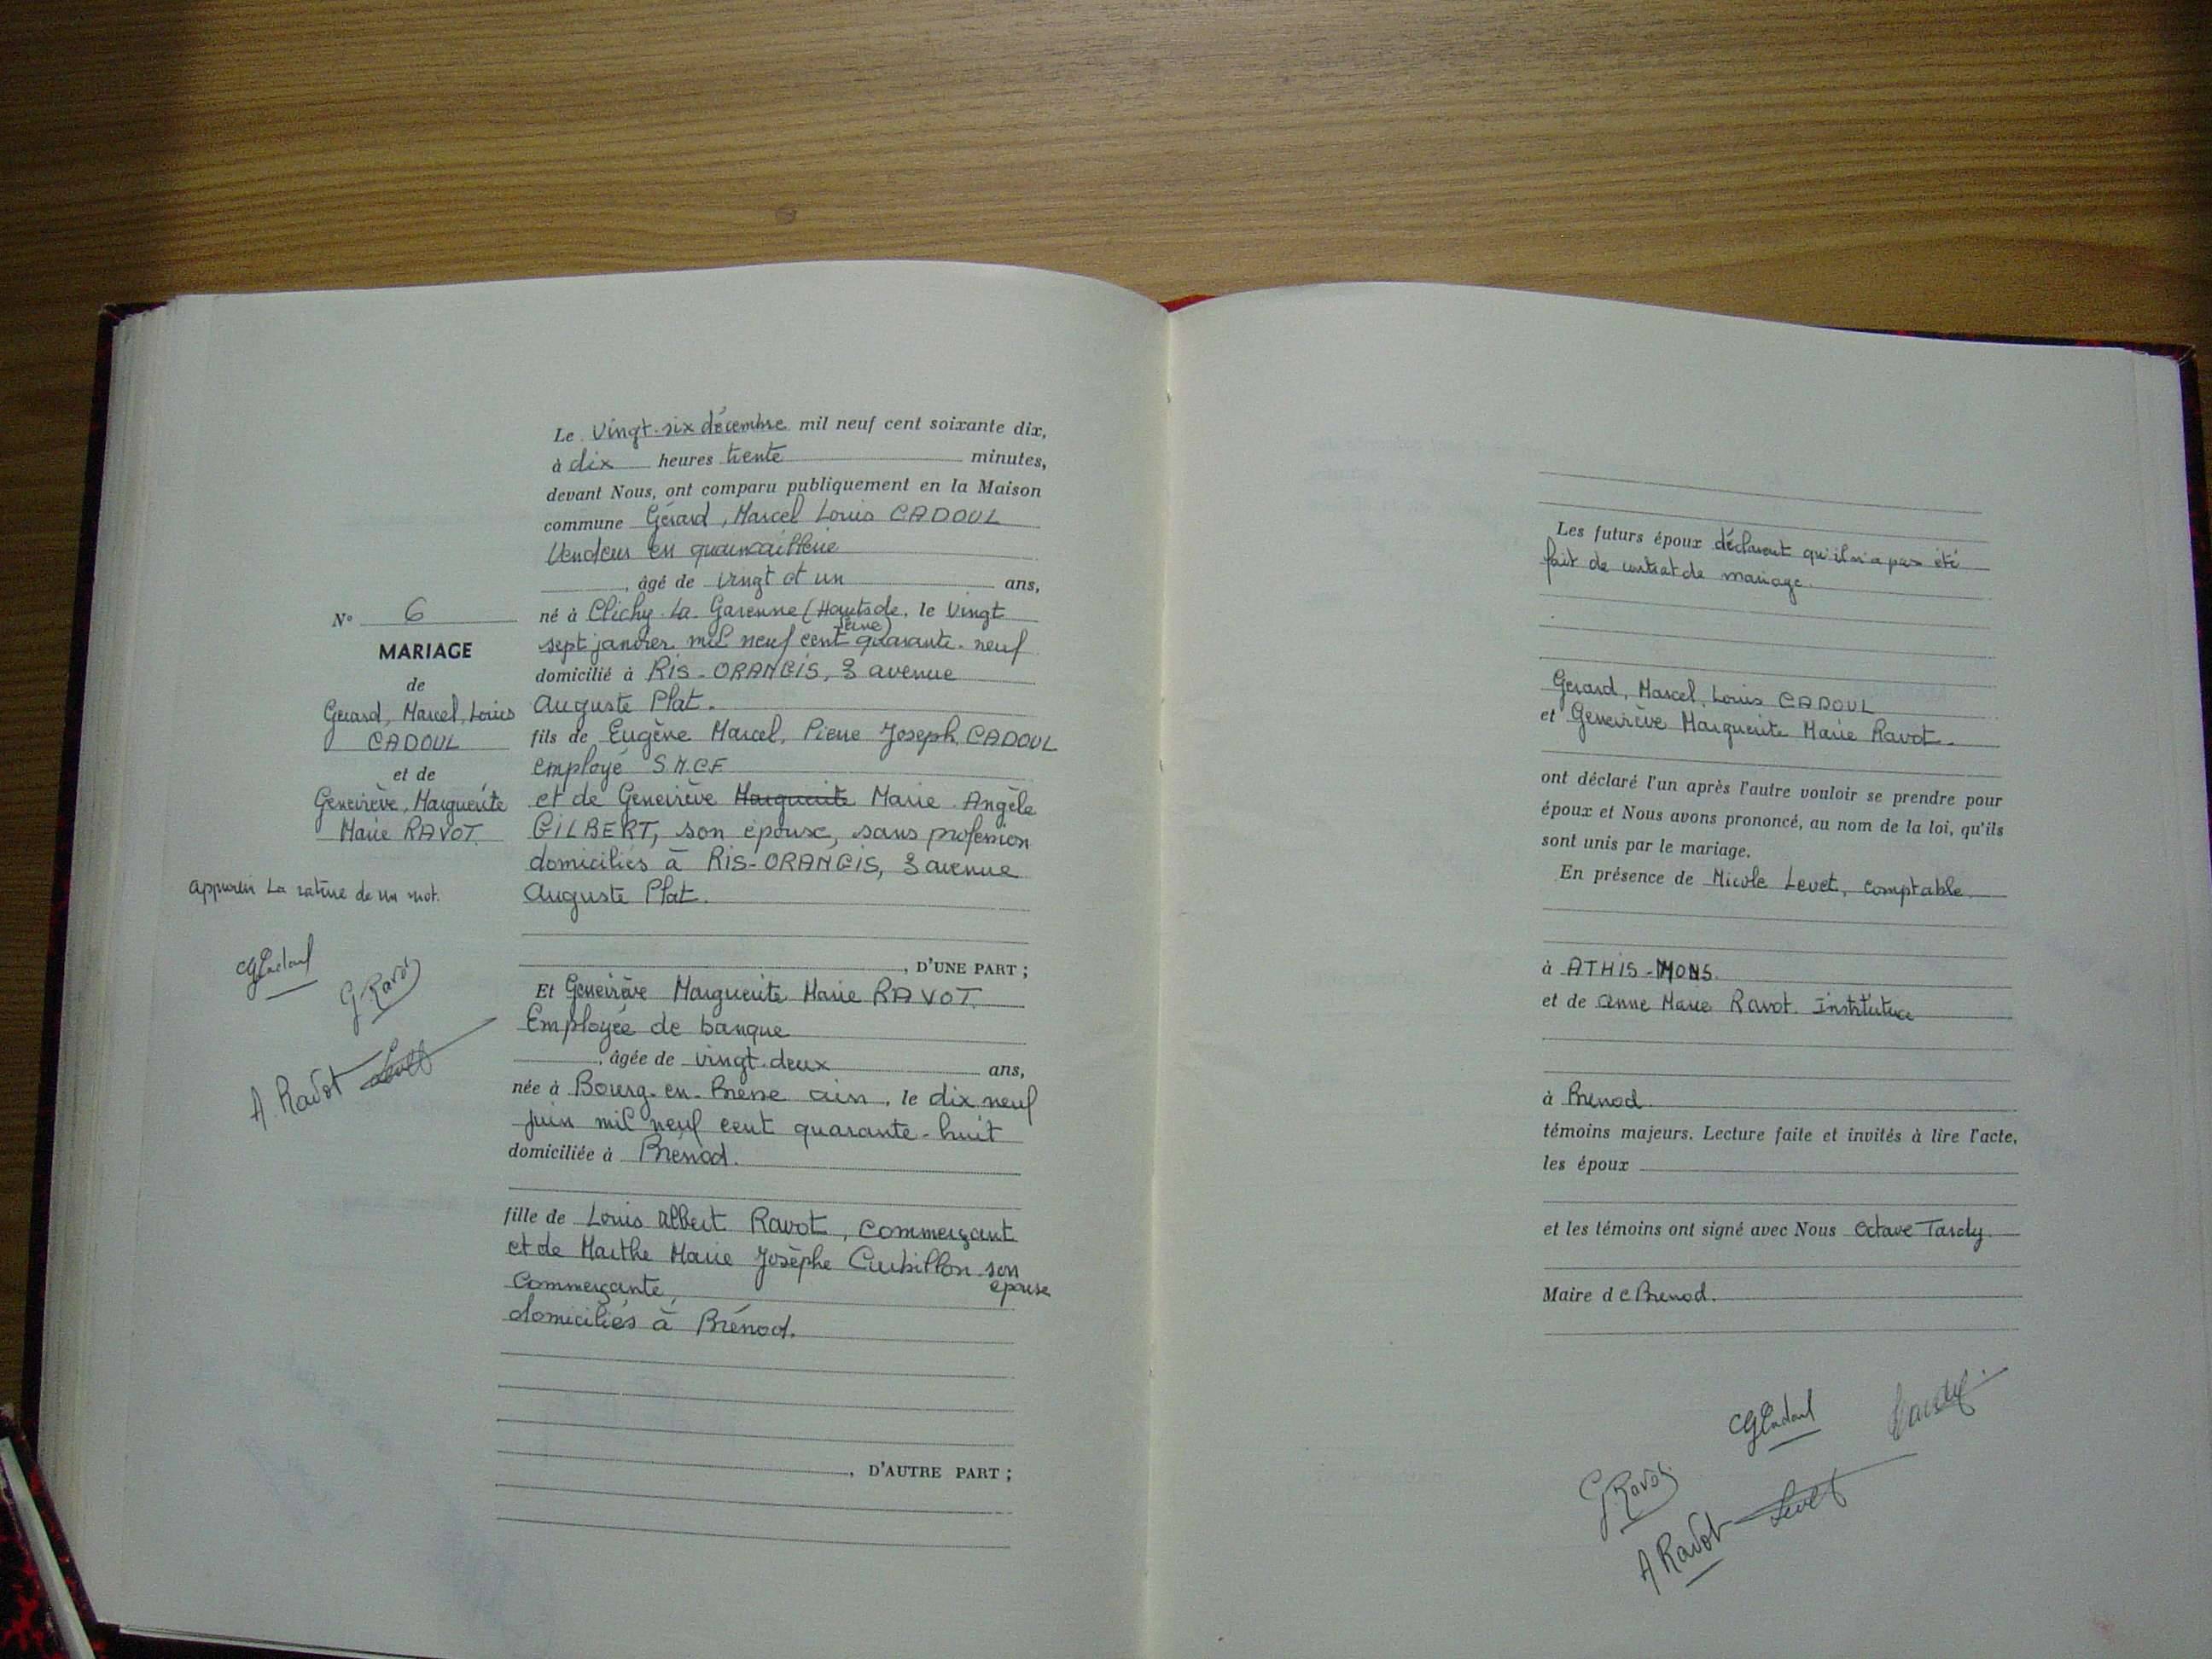 Le Vingt-six décembre mil neuf cent soixante dix,
à dix heures trente minutes,
devant Nous, ont comparu publiquement en la Maison
commune Gérard, Marcel Louis CADOUL
Vendeur en quaincaillerie
, âgé de vingt et un ans,
né à Clichy-La-Garenne (Hauts de Seine), le Vingt
sept janvier mil neuf cent quarante-neuf
domicilié à RIS-ORANGIS, 3 avenue
Auguste Plat.
fils de Eugène Marcel, Pierre Joseph CADOUL
employé S.N.C.F
et de Geneviève Marguerite Marie Angèle
GILBERT, son épouse, sans profession
domiciliés à RIS-ORANGIS, 3 avenue
Auguste Plat.
, D'UNE PART ;
Et Geneviève Marguerite Marie RAVOT
Employée de banque
, âgée de vingt-deux ans,
née à Bourg-en-Bresse ain, le dix neuf
juin mil neuf cent quarante-huit
domiciliée à Brénod.
fille de Louis Albert Ravot, commerçant
et de Marthe Marie Josèphe Curbillon son
épouse
Commerçante,
domiciliés à Brénod.
, D'AUTRE PART ;
N° 6
MARIAGE
de
Gérard, Marcel, Louis
CADOUL
et de
Geneviève, Marguerite
Marie RAVOT
La rature de un mot.
G Cadoul
G. Ravot
A. Ravot Levet
Les futurs époux déclarent qu'il n'a pas été
fait de contrat de mariage.
Gérard, Marcel, Louis CADOUL
et Geneviève Marguerite Marie Ravot.
ont déclaré l'un après l'autre vouloir se prendre pour
époux et Nous avons prononcé, au nom de la loi, qu'ils
sont unis par le mariage.
En présence de Nicole Levet, comptable
à ATHIS-MONS.
et de Anne Marie Ravot. Institutrice
à Brenod
témoins majeurs. Lecture faite et invités à lire l'acte,
les époux
et les témoins ont signé avec Nous Octave Tardy
Maire de Brenod.
G Cadoul Tardy
G. Ravot
A Ravot Levet